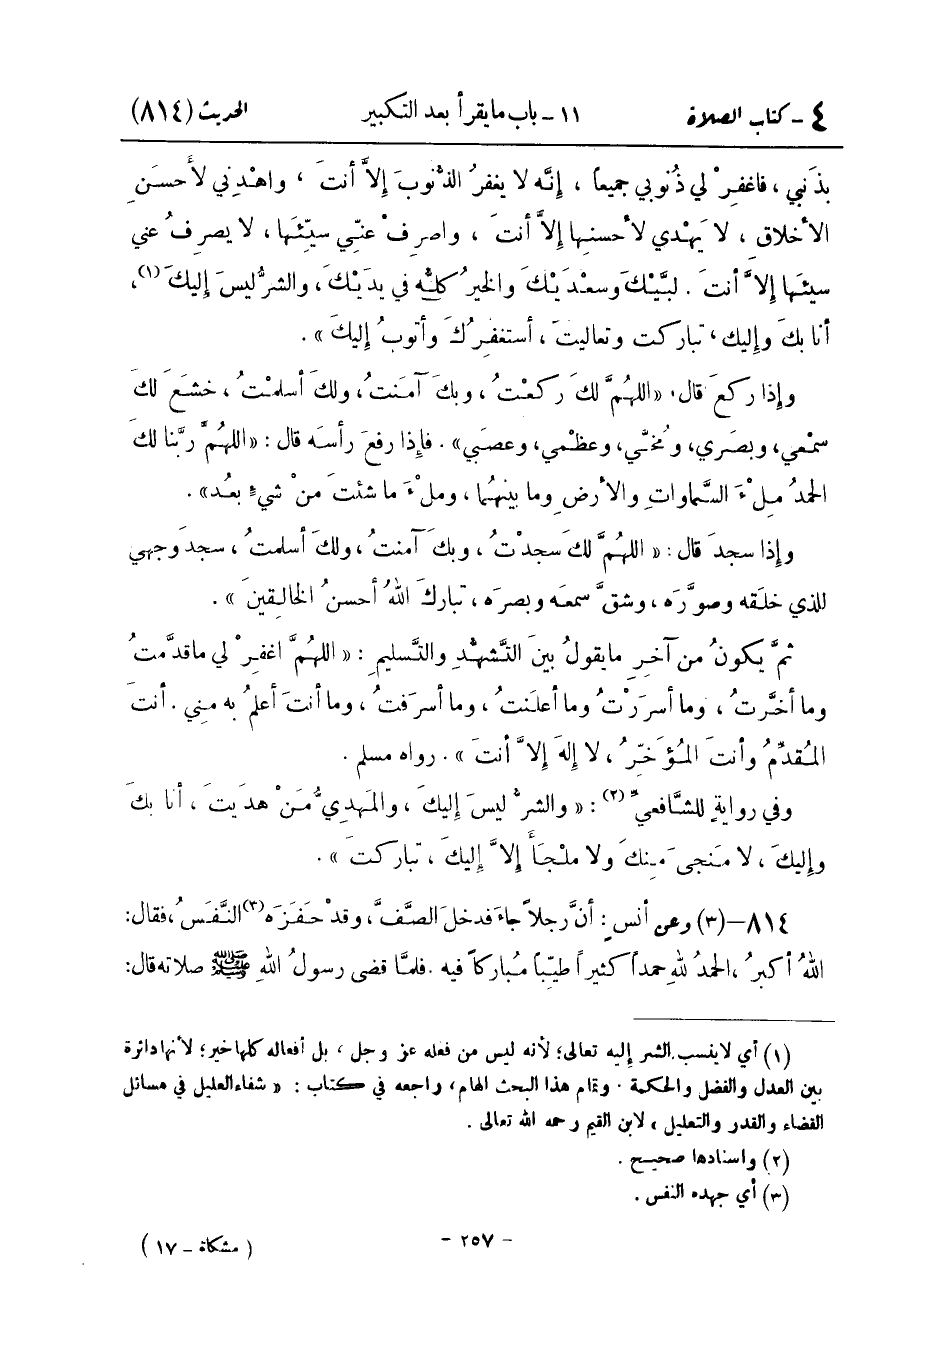 ٤ - كتاب الصلاة ١١ - باب ما يقرأ بعد التكبير الحديث (٨١٤)
بذَنبي ، فاغفِرْ لي ذُنوبي جميعاً ، إِنَّه لا يغفرُ الذُّنوبَ إِلاَّ أنتَ ، واهْدِني لأَحسَنِ
الأخلاقِ ، لا يَهْدي لأحسنِها إِلاَّ أنتَ ، واصرِفْ عنّي سيّئَها ، لا يصرِفُ عني
سيئَها إِلاَّ أنتَ . لبَّيْكَ وسعْدَيْكَ والخيرُ كلُّه في يدَيْكَ ، والشرُّ ليسَ إِليكَ (١) ،
أنا بكَ وإِليك ، تباركت وتعاليتَ ، أستغفرُكَ وأتوبُ إِليكَ » .
وإِذا ركعَ قال: «اللهُمَّ لكَ ركعْتُ ، وبكَ آمَنتُ ، ولكَ أسلمْتُ ، خشَعَ لكَ
سمْعي، وبصَري، ومُخّي، وعظْمي، وعصَبي» . فإِذا رفعَ رأسَه قال : «اللهُمَّ ربَّنا لكَ
الحمدُ مِلْءَ السَّماواتِ والأرضِ وما بينهُما ، وملْءَ ما شئتَ منْ شيءٍ بعدُ» .
وإِذا سجدَ قال : « اللهُمَّ لكَ سجدْتُ ، وبكَ آمنتُ ، ولكَ أسلمتُ ، سجدَ وجهي
للذي خلَقَه وصوَّرَه ، وشقَّ سمعَه وبصرَه ، تباركَ اللهُ أحسنُ الخالِقينَ » .
ثمَّ يكونُ من آخرِ ما يقولُ بينَ التَّشهُّدِ والتَّسليمِ : « اللهُمَّ اغفِرْ لي ما قدَّمتُ
وما أخَّرتُ ، وما أسرَرْتُ وما أعلَنتُ ، وما أسرَفتُ ، وما أنتَ أعلمُ به مني . أنتَ
المُقدِّمُ وأنتَ المُؤَخِّرُ ، لا إِلهَ إِلاَّ أنتَ » . رواه مسلم .
وفي روايةٍ للشَّافعيِّ (٢) : « والشرُّ ليسَ إِليكَ ، والمَهديُّ مَنْ هدَيتَ ، أنا بكَ
وإِليكَ ، لا مَنجى مِنكَ ولا ملْجَأَ إِلاَّ إِليكَ ، تباركتَ » .
٨١٤-(٣) وعن أنسٍ : أنَّ رجلاً جاءَ فدخلَ الصَّفَّ ، وقدْ حفَزَه (٣) النَّفَسُ ، فقال:
اللهُ أكبرُ ، الحمدُ للهِ حمداً كثيراً طيّباً مُباركاً فيه . فلمَّا قضى رسولُ اللهِ ﷺ صلاته قال:
(١) أي لا ينسب الشر إليه تعالى؛ لأنه ليس من فعله عز وجل ، بل أفعاله كلها خير؛ لأنها دائرة
بين العدل والفضل والحكمة . وتمام هذا البحث الهام، راجعه في كتاب : « شفاء العليل في مسائل
القضاء والقدر والتعليل ، لابن القيم رحمه الله تعالى .
(٢) واسنادها صحيح .
(٣) أي جهده النفس .
- ٢٥٧ -
( مشكاة - ١٧ )